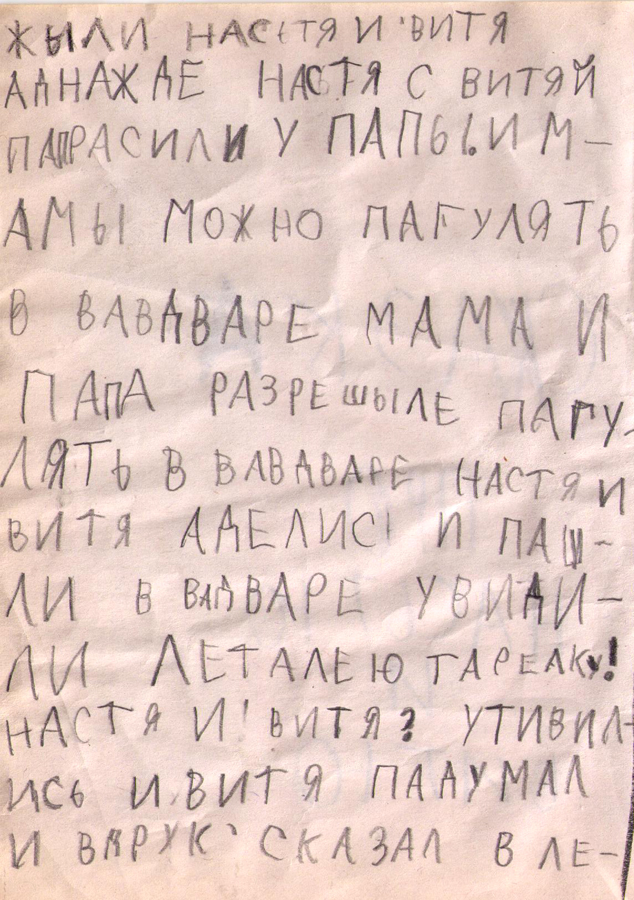 ЖЫЛИ НАСТЯ И ВИТЯ
АДНАЖДЕ НАСТЯ С ВИТЯЙ
ПАПРАСИЛИ У ПАПЫ.И М-
АМЫ МОЖНО ПАГУЛЯТЬ
В ВАВДВАРЕ МАМА И
ПАПА РАЗРЕШЫЛЕ ПАГУ-
ЛЯТЬ В ВАВДВАРЕ НАСТЯ И
ВИТЯ АДЕЛИСЬ И ПАШ-
ЛИ В ВАДВАРЕ УВИДИ-
ЛИ ЛЕТАЛЕЮ ТАРЕЛКУ!
НАСТЯ И! ВИТЯ? УТИВИЛ-
ИСЬ И ВИТЯ ПАДУМАЛ
И ВДРУК СКАЗАЛ В ЛЕ-